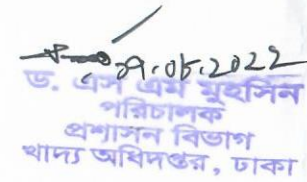 ০৭.০৮.২০২২
ড. এস এম মুহসিন
পরিচালক
প্রশাসন বিভাগ
খাদ্য অধিদপ্তর, ঢাকা